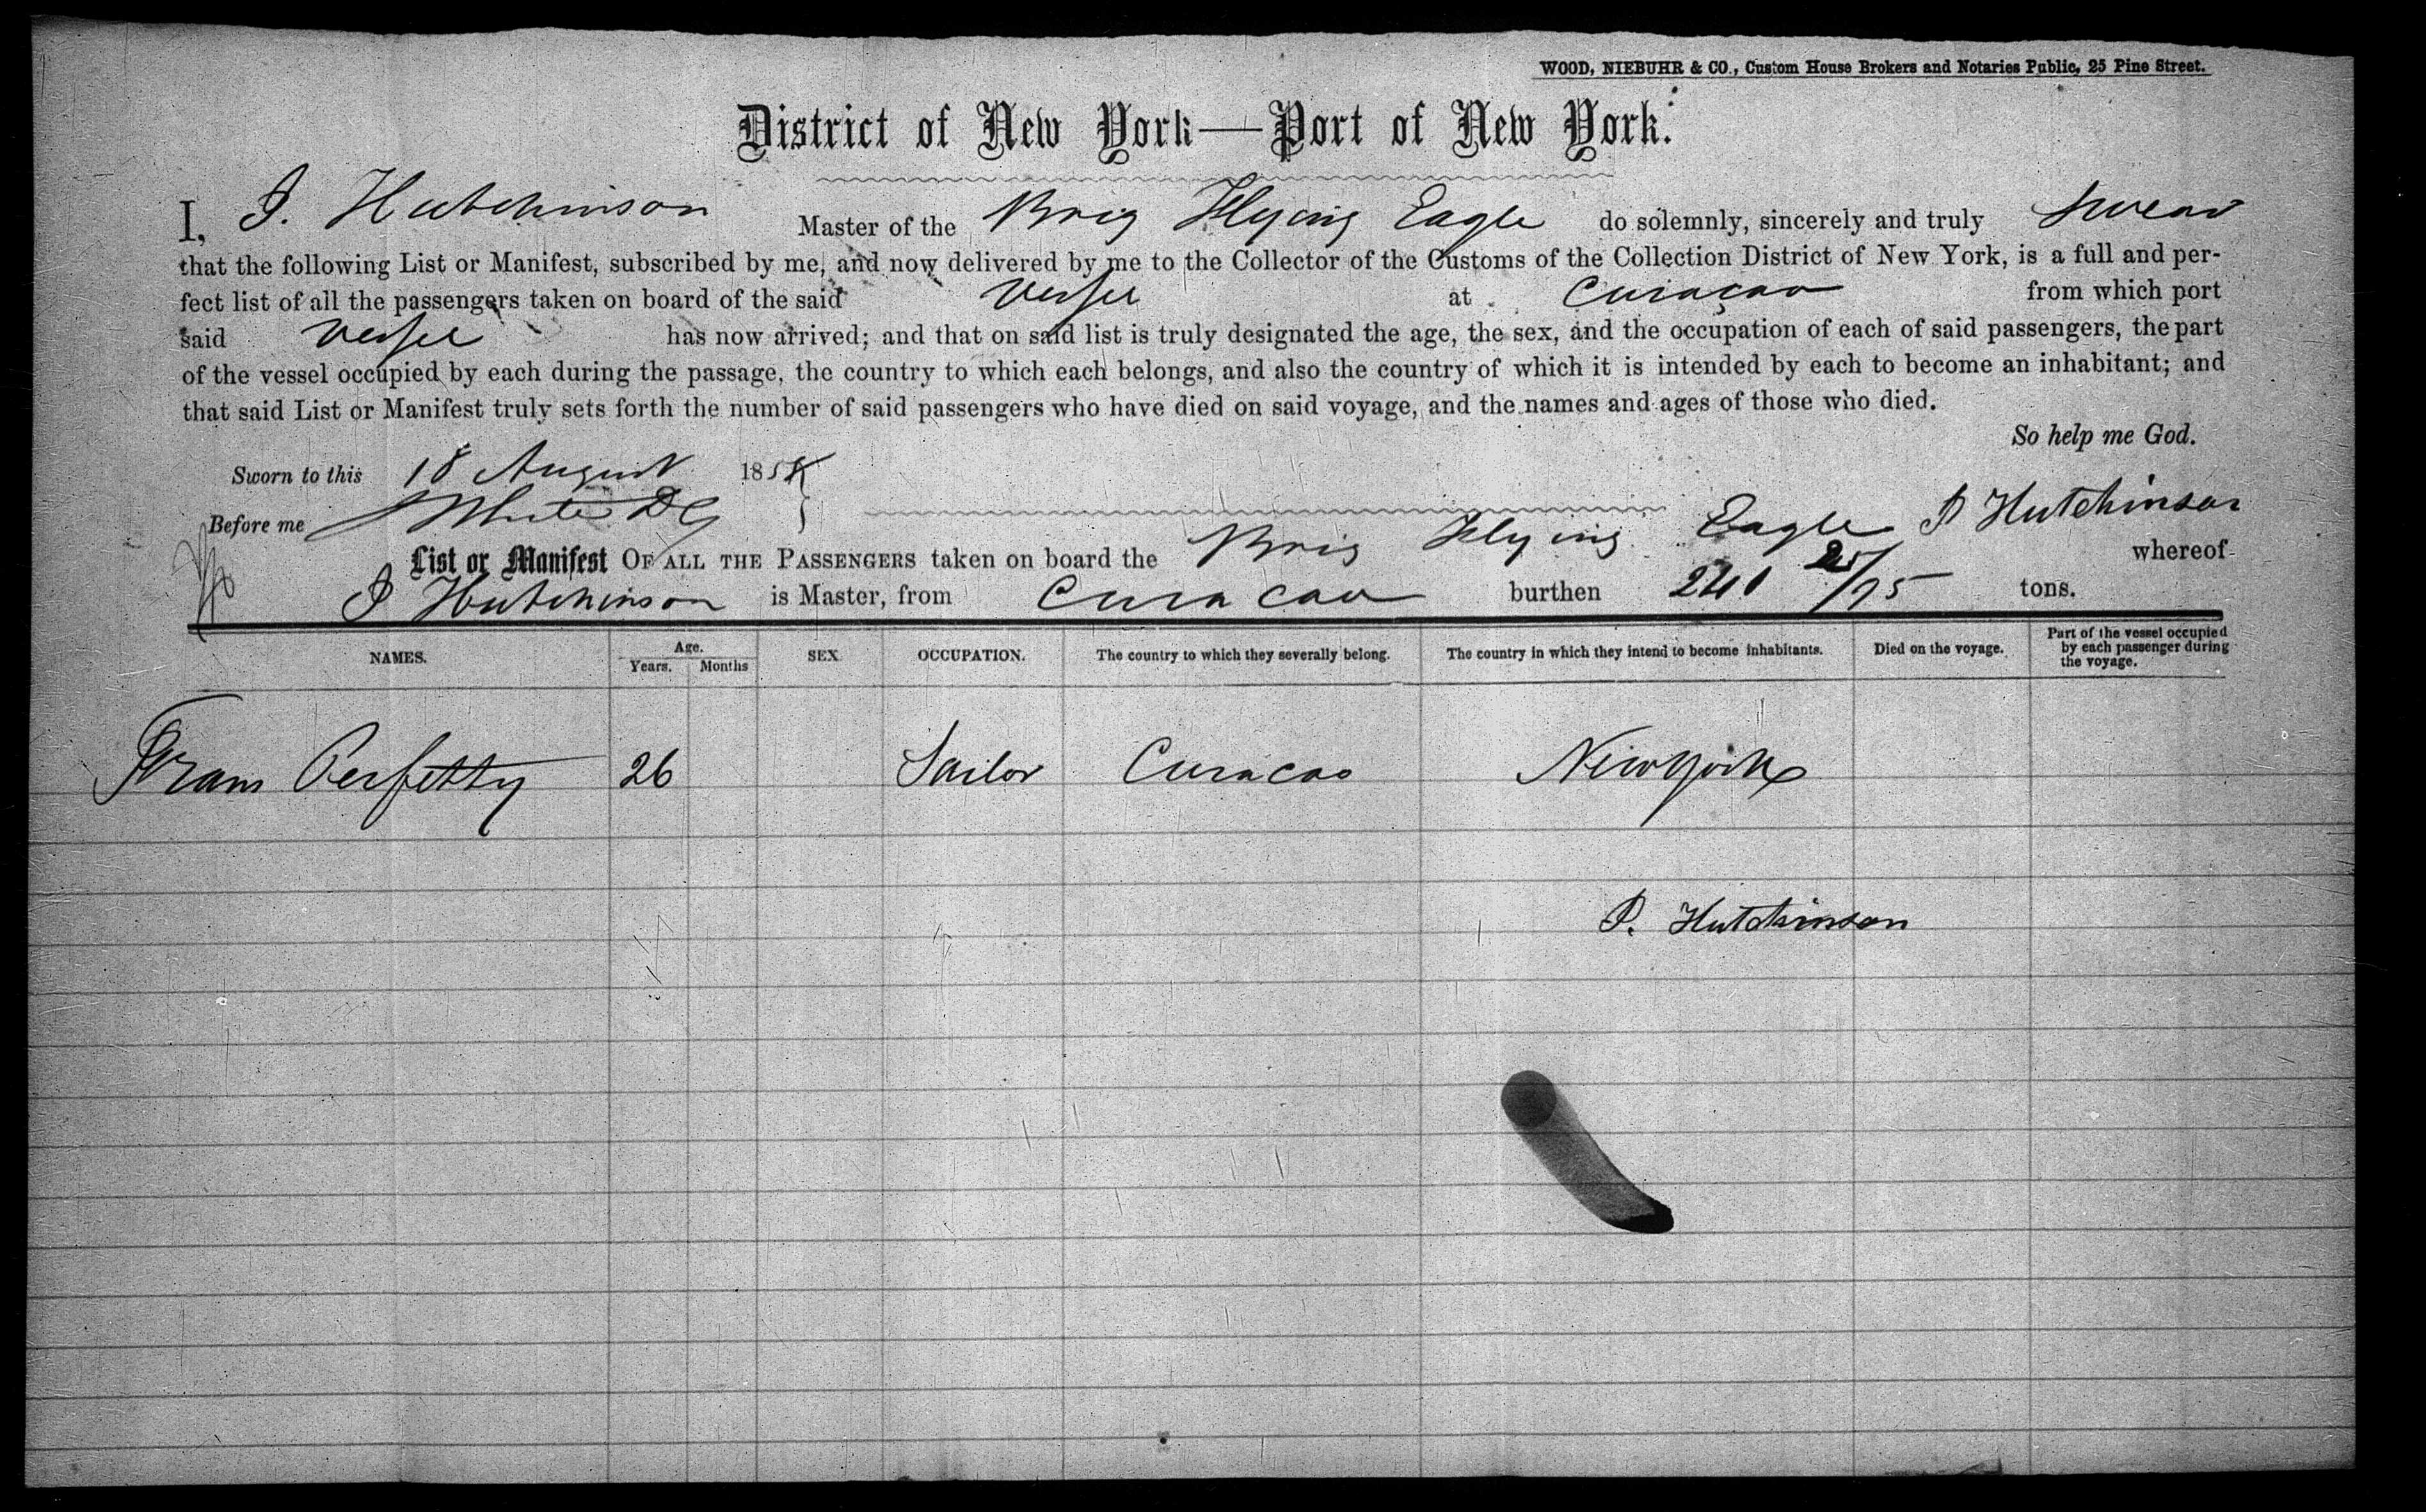 WOOD, NIEBUHR & CO., Custom House Brokers and Notaries Public, 25 Pine Street.
District of New York—Port of New York.
I, P. Hutchinson Master of the Brig Flying Eagle do solemnly, sincerely and truly swear
that the following List or Manifest, subscribed by me, and now delivered by me to the Collector of the Customs of the Collection District of New York, is a full and per-
fect list of all the passengers taken on board of the said Vessel at Curaçao from which port
said Vessel has now arrived; and that on said list is truly designated the age, the sex, and the occupation of each of said passengers, the part
of the vessel occupied by each during the passage, the country to which each belongs, and also the country of which it is intended by each to become an inhabitant; and
that said List or Manifest truly sets forth the number of said passengers who have died on said voyage, and the names and ages of those who died.
So help me God.
Sworn to this 18 August 185
Before me White P Hutchinson
List or Manifest OF ALL THE PASSENGERS taken on board the Brig Flying Eagle whereof
P Hutchinson is Master, from Curacao burthen 241 /95 tons.
NAMES. Age. Years. Months SEX. OCCUPATION. The country to which they severally belong. The country in which they intend to become inhabitants. Died on the voyage. Part of the vessel occupied by each passenger during the voyage.
Fram Perfetty 26 Sailor Curacao New York
P. Hutchinson